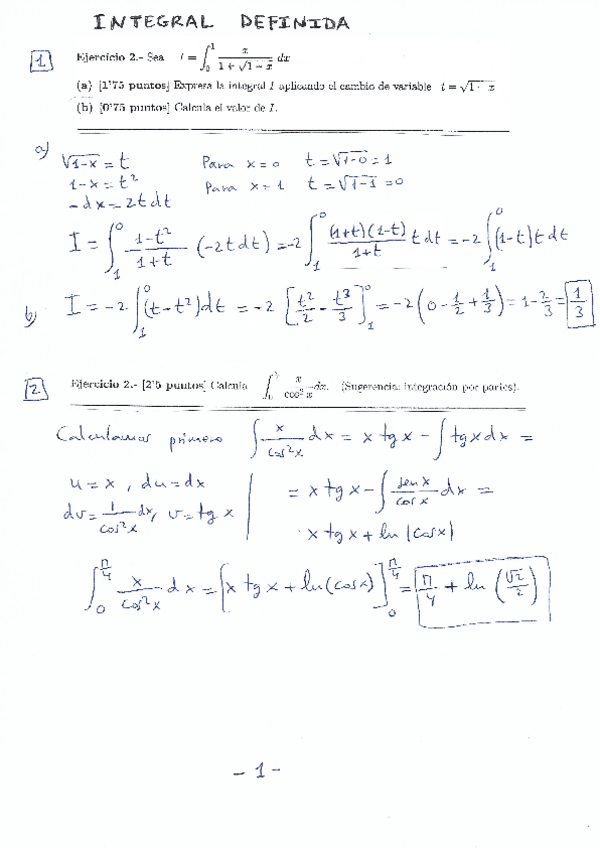 INTEGRAL DEFINIDA
1 Ejercicio 2.- Sea I = ∫₀¹ x/(1 + √(1 − x)) dx
(a) [1'75 puntos] Expresa la integral I aplicando el cambio de variable t = √(1 − x)
(b) [0'75 puntos] Calcula el valor de I.
a)
√(1-x) = t Para x = 0 t = √(1-0) = 1
1-x = t² Para x = 1 t = √(1-1) = 0
-dx = 2t dt
I = ∫₁⁰ (1-t²)/(1+t) (-2t dt) = -2 ∫₁⁰ (1+t)(1-t)/(1+t) t dt = -2 ∫₁⁰ (1-t) t dt
b) I = -2 ∫₁⁰ (t-t²) dt = -2 [t²/2 - t³/3]₁⁰ = -2 (0 - 1/2 + 1/3) = 1 - 2/3 = 1/3
2 Ejercicio 2.- [2'5 puntos] Calcula ∫₀ x/cos² x dx. (Sugerencia: integración por partes).
Calculamos primero ∫ x/cos²x dx = x tg x - ∫ tg x dx =
u = x, du = dx = x tg x - ∫ sen x/cos x dx =
dv = 1/cos²x dx, v = tg x x tg x + ln |cos x|
∫₀^(π/4) x/cos²x dx = [x tg x + ln(cos x)]₀^(π/4) = π/4 + ln (√2/2)
- 1 -